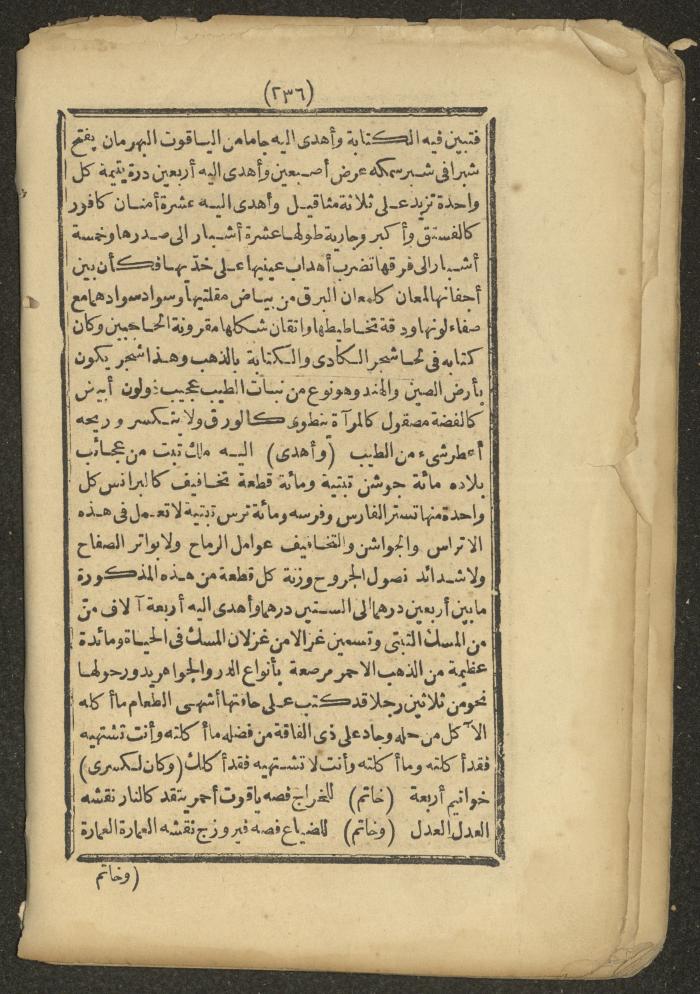 (٢٣٦)
فتبين فيه الكتابة وأهدى اليه جاما من الياقوت البهرمان يفتح
شبرا فى شبر سمكه عرض أصبعين وأهدى اليه أربعين درة يتيمة كل
واحدة تزيد على ثلاثة مثاقيل وأهدى اليه عشرة أمنان كافور
كالفستق وأكبر وجارية طولها عشرة أشبار الى صدرها وخمسة
أشبار الى فرقها تضرب أهداب عينيها على خدّيها فكأن بين
أجفانها لمعان كلمعان البرق من بياض مقلتيها وسواد سوادهما مع
صفاء لونها ودقة تخاطيطها واتقان شكلها مقرونة الحاجبين وكان
كتابه فى لحا شجر الكادى والكتابة بالذهب وهذا شجر يكون
بأرض الصين والهند وهو نوع من نبات الطيب عجيب ذو لون أبيض
كالفضة مصقول كالمرآة ينطوى كالورق ولا يتكسر وريحه
أعطر شىء من الطيب (وأهدى) اليه ملك تبت من عجائب
بلاده مائة جوشن تبتية ومائة قطعة تخافيف كالبرانس كل
واحدة منها تستر الفارس وفرسه ومائة ترس تبتية لا تعمل فى هذه
الاتراس والجواشن والتخافيف عوامل الرماح ولا بواتر الصفاح
ولا شدائد نصول الجروح وزنة كل قطعة من هذه المذكورة
ما بين أربعين درهما الى الستين درهما وأهدى اليه أربعة آلاف منّ
من المسك التبتى وتسمين غزالا من غزلان المسك فى الحياة ومائدة
عظيمة من الذهب الاحمر مرصعة بأنواع الدر والجواهر يدور حولها
نحو من ثلاثين رجلا قد كتب على حافتها أشهى الطعام ما أكله
الآكل من حله وجاد على ذى الفاقة من فضله ما أكلته وأنت تشتهيه
فقد أكلته وما أكلته وأنت لا تشتهيه فقد أكلك (وكان لكسرى)
خواتيم أربعة (خاتم) للخراج فصه ياقوت أحمر يتقد كالنار نقشه
العدل العدل (وخاتم) للضياع فصه فيروزج نقشه العمارة العمارة
(وخاتم